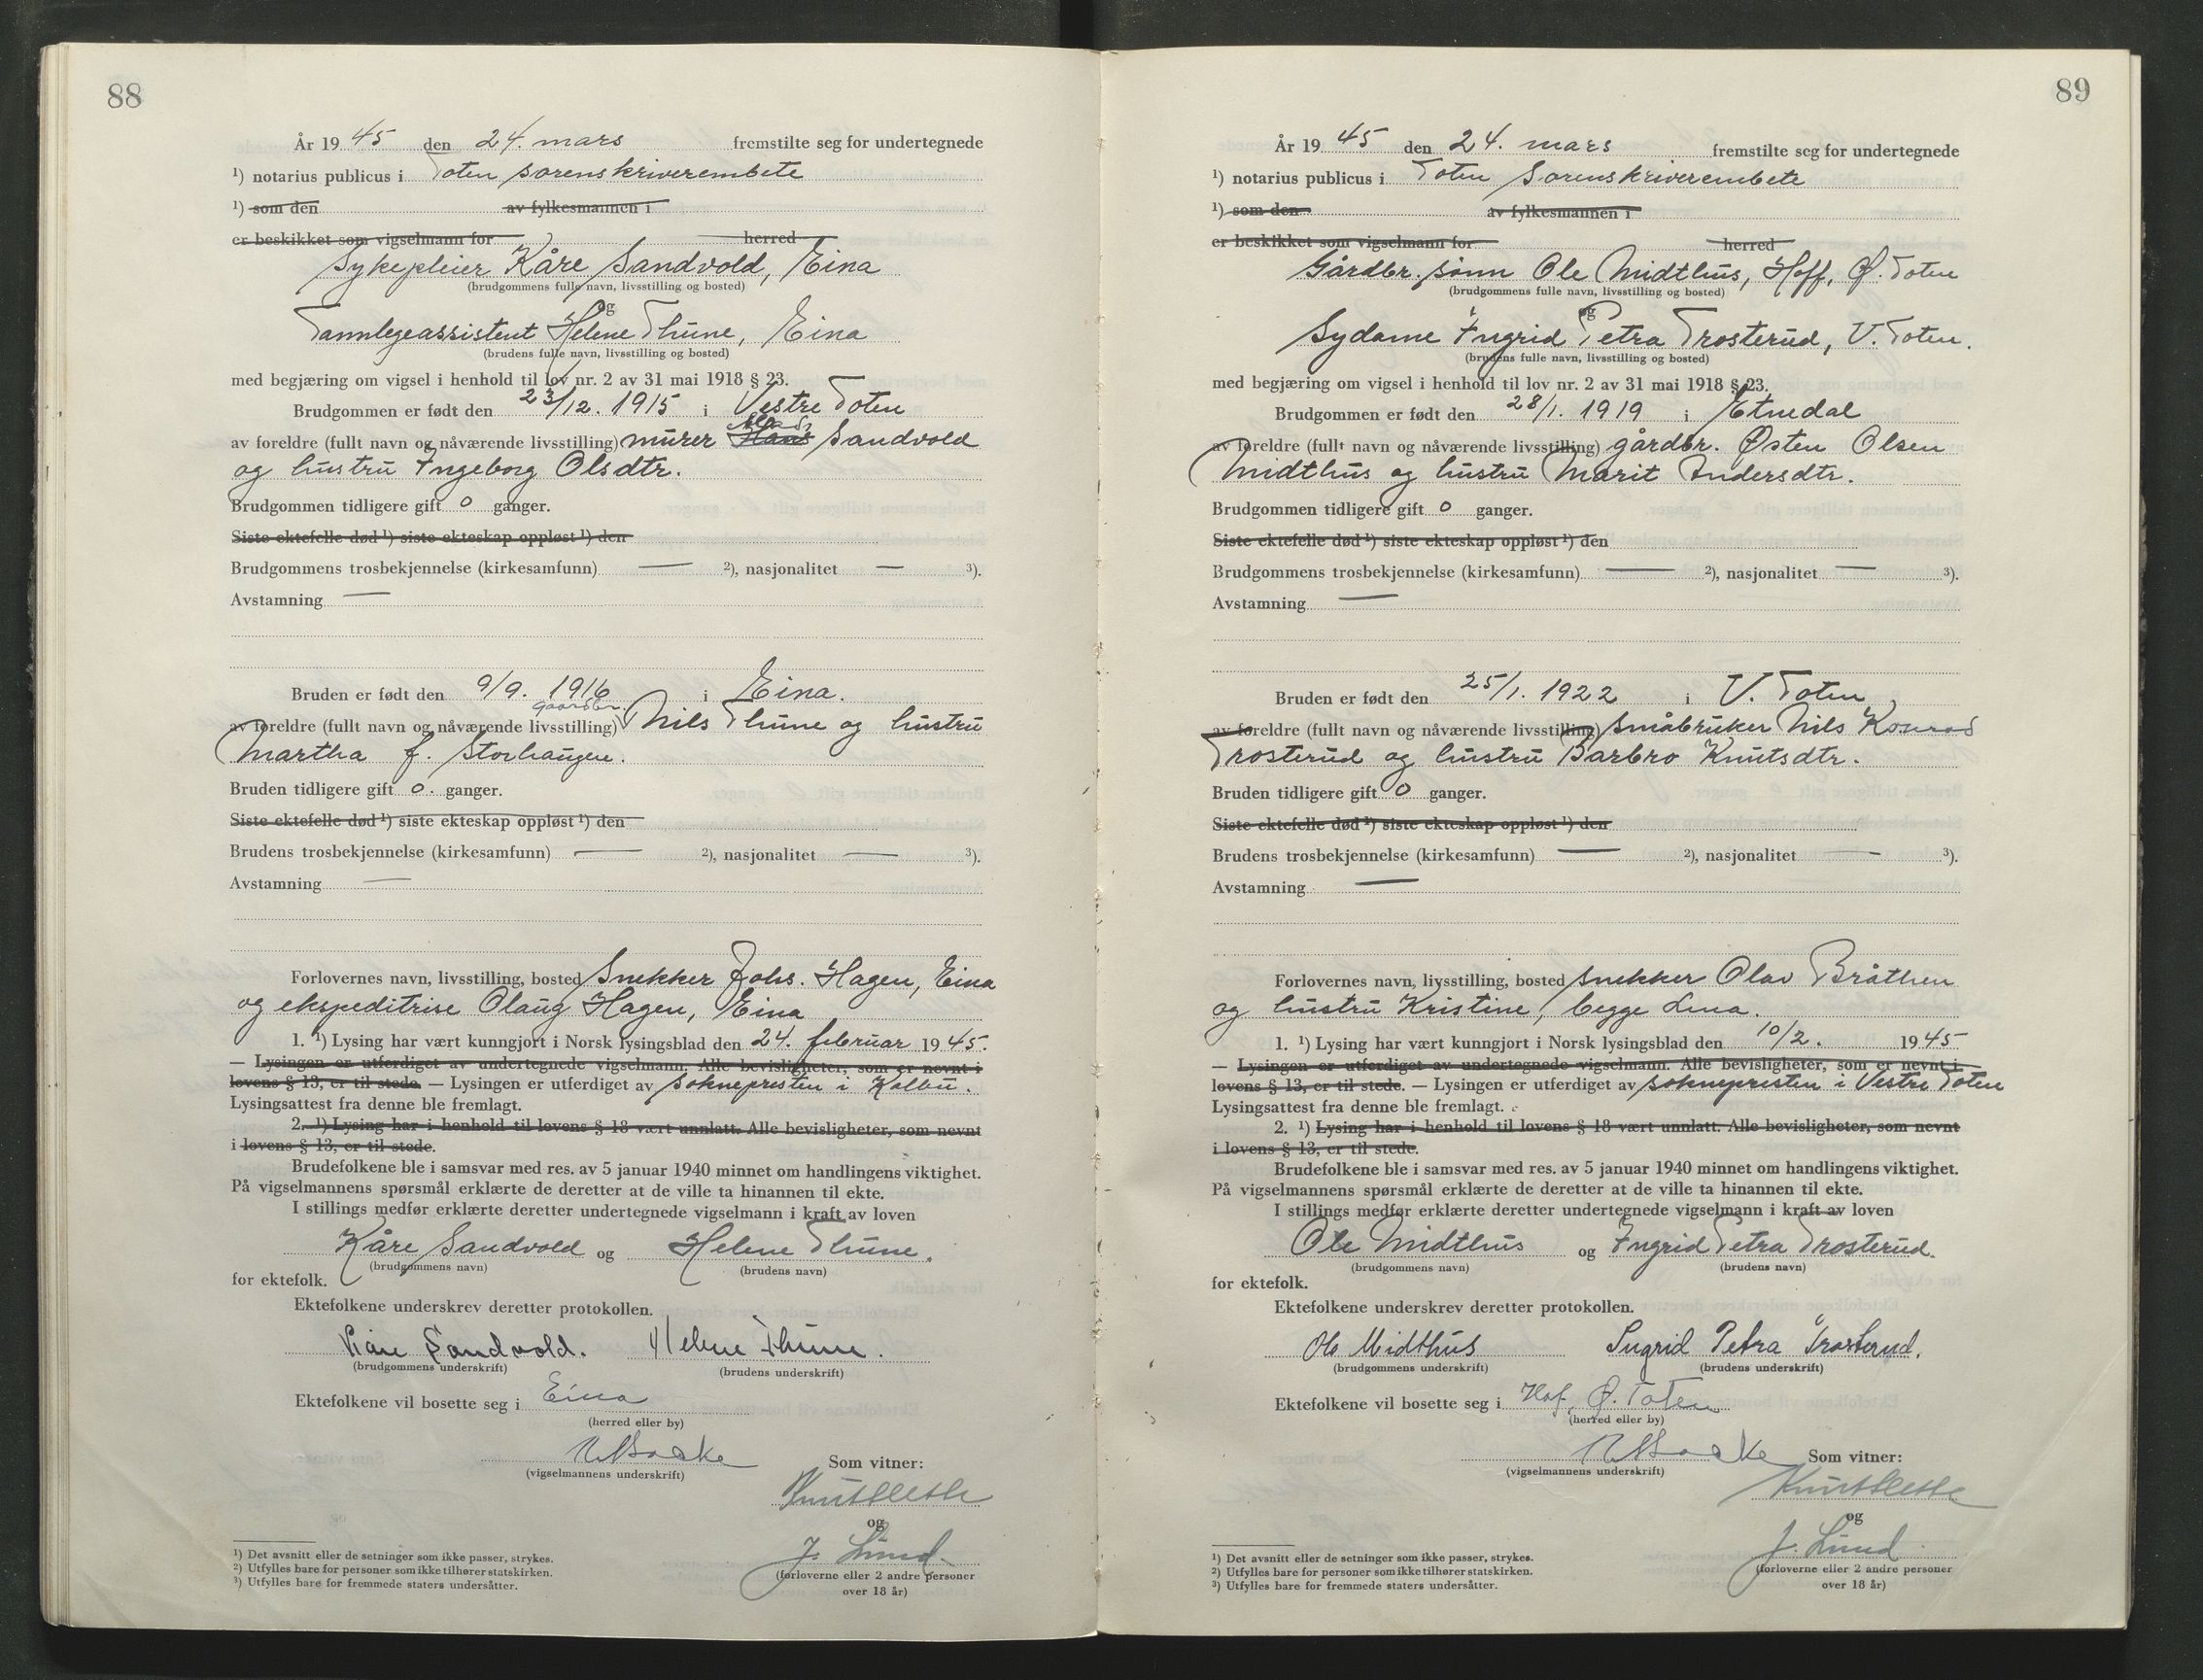 88
År 19 45 den 24. mars fremstilte seg for undertegnede
¹) notarius publicus i Toten sorenskriverembete
¹) som den av fylkesmannen i
er beskikket som vigselmann for herred
Sykepleier Kåre Sandvold, Eina
(brudgommens fulle navn, livsstilling og bosted)
og
Tannlegeassistent Helene Thune, Eina
(brudens fulle navn, livsstilling og bosted)
med begjæring om vigsel i henhold til lov nr. 2 av 31 mai 1918 § 23.
Brudgommen er født den 23/12. 1915 i Vestre Toten
av foreldre (fullt navn og nåværende livsstilling) murer Hans Sandvold
og hustru Ingeborg Olsdtr.
Brudgommen tidligere gift 0 ganger.
Siste ektefelle død ¹) siste ekteskap oppløst ¹) den
Brudgommens trosbekjennelse (kirkesamfunn) — ²), nasjonalitet — ³).
Avstamning —
Bruden er født den 9/9. 1916 i Eina.
gaardbr.
av foreldre (fullt navn og nåværende livsstilling) Nils Thune og hustru
Martha f. Storhaugen.
Bruden tidligere gift 0. ganger.
Siste ektefelle død ¹) siste ekteskap oppløst ¹) den
Brudens trosbekjennelse (kirkesamfunn) — ²), nasjonalitet — ³).
Avstamning —
Forlovernes navn, livsstilling, bosted Snekker Johs. Hagen, Eina
og ekspeditrise Olaug Hagen, Eina
1. ¹) Lysing har vært kunngjort i Norsk lysingsblad den 24. februar 1945.
— Lysingen er utferdiget av undertegnede vigselmann. Alle bevisligheter, som er nevnt i
lovens § 13, er til stede. — Lysingen er utferdiget av sokneprestenn i Kolbu.
Lysingsattest fra denne ble fremlagt.
2. ¹) Lysing har i henhold til lovens § 18 vært unnlatt. Alle bevisligheter, som nevnt
i lovens § 13, er til stede.
Brudefolkene ble i samsvar med res. av 5 januar 1940 minnet om handlingens viktighet.
På vigselmannens spørsmål erklærte de deretter at de ville ta hinannen til ekte.
I stillings medfør erklærte deretter undertegnede vigselmann i kraft av loven
Kåre Sandvold og Helene Thune.
(brudgommens navn) (brudens navn)
for ektefolk.
Ektefolkene underskrev deretter protokollen.
Kåre Sandvold. Helene Thune.
(brudgommens underskrift) (brudens underskrift)
Ektefolkene vil bosette seg i Eina
(herred eller by)
(vigselmannens underskrift) Som vitner:
og
J. Lund
(forloverne eller 2 andre personer
over 18 år)
¹) Det avsnitt eller de setninger som ikke passer, strykes.
²) Utfylles bare for personer som ikke tilhører statskirken.
³) Utfylles bare for fremmede staters undersåtter.
89
År 19 45 den 24. mars fremstilte seg for undertegnede
¹) notarius publicus i Toten Sorenskriverembete
¹) som den av fylkesmannen i
er beskikket som vigselmann for herred
Gårdbr. sønn Ole Midthus, Hoff, Ø. Toten
(brudgommens fulle navn, livsstilling og bosted)
og
Sydame Ingrid Petra Trosterud, V. Toten.
(brudens fulle navn, livsstilling og bosted)
med begjæring om vigsel i henhold til lov nr. 2 av 31 mai 1918 § 23.
Brudgommen er født den 28/1. 1919 i Etnedal
av foreldre (fullt navn og nåværende livsstilling) gårdbr. Østen Olsen
Midthus og hustru Marit Andersdtr.
Brudgommen tidligere gift 0 ganger.
Siste ektefelle død ¹) siste ekteskap oppløst ¹) den
Brudgommens trosbekjennelse (kirkesamfunn) — ²), nasjonalitet — ³).
Avstamning —
Bruden er født den 25/1. 1922 i V. Toten
av foreldre (fullt navn og nåværende livsstilling) småbruker Nils Konrad
Trosterud og hustru Barbro Knutsdtr.
Bruden tidligere gift 0 ganger.
Siste ektefelle død ¹) siste ekteskap oppløst ¹) den
Brudens trosbekjennelse (kirkesamfunn) — ²), nasjonalitet — ³).
Avstamning —
Forlovernes navn, livsstilling, bosted snekker Olav Bråthen
og hustru Kristine, begge Lena.
1. ¹) Lysing har vært kunngjort i Norsk lysingsblad den 10/2. 1945
— Lysingen er utferdiget av undertegnede vigselmann. Alle bevisligheter, som er nevnt i
lovens § 13, er til stede. — Lysingen er utferdiget av soknepresten i Vestre Toten
Lysingsattest fra denne ble fremlagt.
2. ¹) Lysing har i henhold til lovens § 18 vært unnlatt. Alle bevisligheter, som nevnt
i lovens § 13, er til stede.
Brudefolkene ble i samsvar med res. av 5 januar 1940 minnet om handlingens viktighet.
På vigselmannens spørsmål erklærte de deretter at de ville ta hinannen til ekte.
I stillings medfør erklærte deretter undertegnede vigselmann i kraft av loven
Ole Midthus og Ingrid Petra Trosterud.
(brudgommens navn) (brudens navn)
for ektefolk.
Ektefolkene underskrev deretter protokollen.
Ole Midthus Ingrid Petra Trosterud.
(brudgommens underskrift) (brudens underskrift)
Ektefolkene vil bosette seg i Hof, Ø. Toten
(herred eller by)
(vigselmannens underskrift) Som vitner:
og
J. Lund
(forloverne eller 2 andre personer
over 18 år)
¹) Det avsnitt eller de setninger som ikke passer, strykes.
²) Utfylles bare for personer som ikke tilhører statskirken.
³) Utfylles bare for fremmede staters undersåtter.